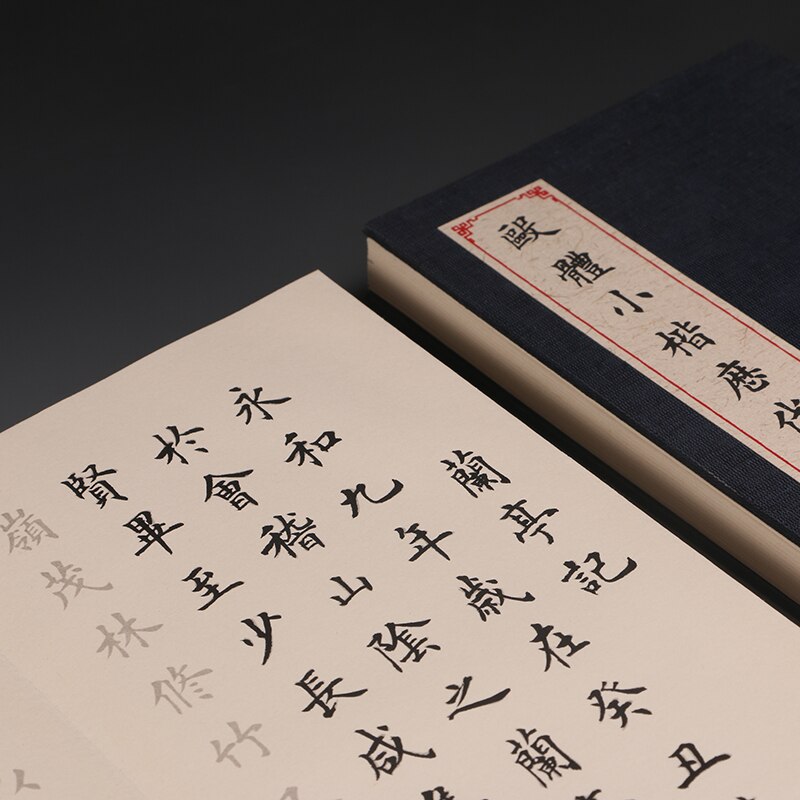 歐體小楷
蘭亭記
永和九年歲在癸丑
於會稽山陰之蘭
賢畢至少長咸
嶺茂林修竹